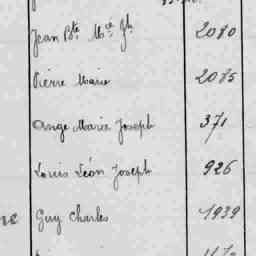 Jean Bte Mce Jh 2080
Pierre Marie 2085
Ange Marie Joseph 371
Louis Léon Joseph 926
Guy Charles 1939